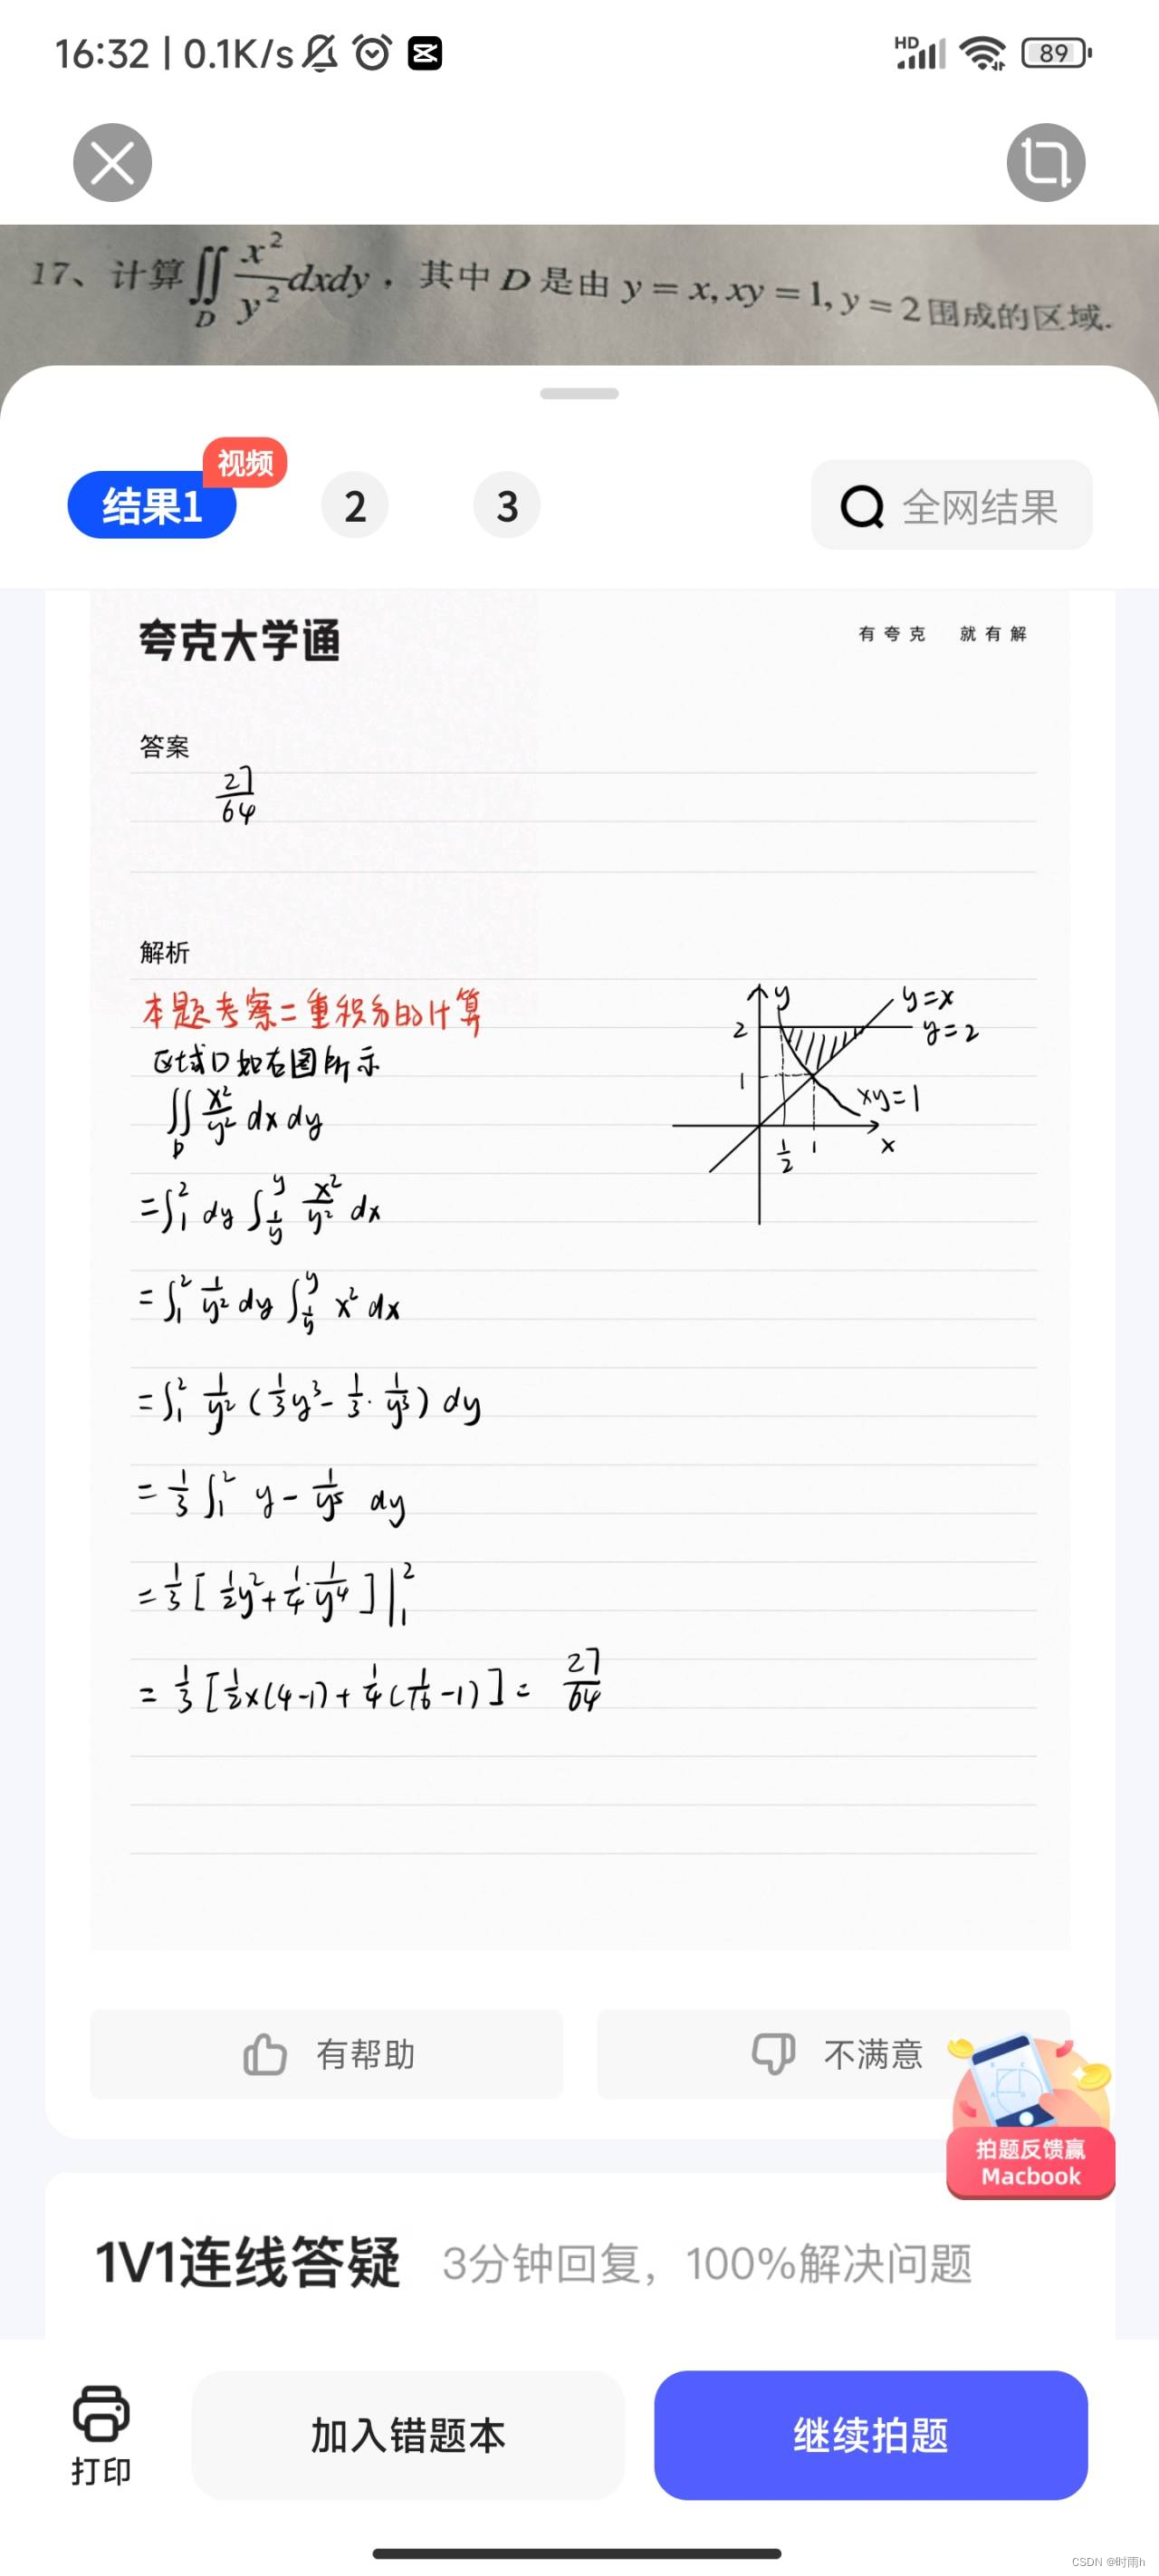 16:32 | 0.1K/s
HD
89
17、计算∬_D x²/y² dxdy，其中 D 是由 y = x, xy = 1, y = 2 围成的区域.
视频
结果1 2 3 全网结果
夸克大学通 有夸克 就有解
答案
27/64
解析
本题考察二重积分的计算
区域D如右图所示
y
y=x
2
y=2
1
xy=1
1/2 1 x
∬_D x²/y² dx dy
=∫₁² dy ∫_{1/y}^{y} x²/y² dx
=∫₁² 1/y² dy ∫_{1/y}^{y} x² dx
=∫₁² 1/y² (1/3 y³ - 1/3 · 1/y³) dy
=1/3 ∫₁² y - 1/y⁵ dy
=1/3 [1/2 y² + 1/4 · 1/y⁴]|₁²
=1/3 [1/2×(4-1) + 1/4(1/16 -1)] = 27/64
有帮助 不满意
拍题反馈赢
Macbook
1V1连线答疑 3分钟回复，100%解决问题
打印 加入错题本 继续拍题
CSDN @时雨h